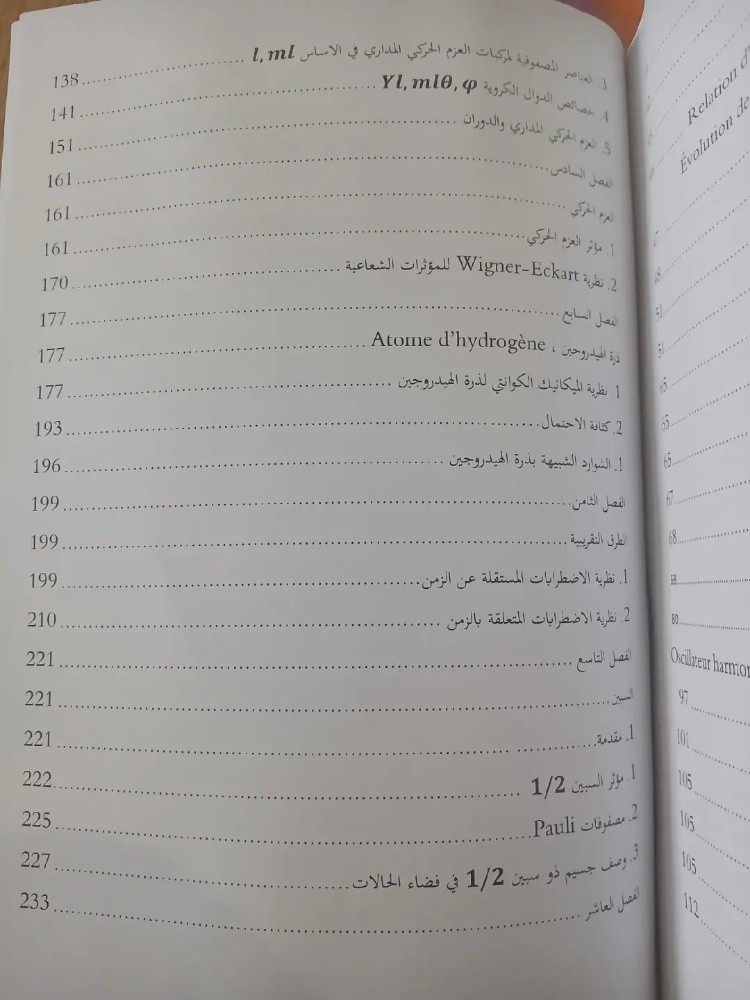 3. العناصر المصفوفية لمركبات العزم الحركي المداري في الاساس l, ml ........ 138
4. خصائص الدوال الكروية Yl, mlθ, φ ........ 141
5. العزم الحركي المداري والدوران ........ 151
الفصل السادس ........ 161
العزم الحركي ........ 161
1. مؤثر العزم الحركي ........ 161
2. نظرية Wigner-Eckart للمؤثرات الشعاعية ........ 170
الفصل السابع ........ 177
ذرة الهيدروجين ، Atome d'hydrogène ........ 177
1. نظرية الميكانيك الكوانتي لذرة الهيدروجين ........ 177
2. كثافة الاحتمال ........ 193
1. الشوارد الشبيهة بذرة الهيدروجين ........ 196
الفصل الثامن ........ 199
الطرق التقريبية ........ 199
1. نظرية الاضطرابات المستقلة عن الزمن ........ 199
2. نظرية الاضطرابات المتعلقة بالزمن ........ 210
الفصل التاسع ........ 221
السبين ........ 221
1. مقدمة ........ 221
1. مؤثر السبين 1/2 ........ 222
2. مصفوفات Pauli ........ 225
3. وصف جسيم ذو سبين 1/2 في فضاء الحالات ........ 227
الفصل العاشر ........ 233
Relation d'
Évolution de
47
48
51
54
65
65
65
67
68
80
Oscillateur harmon
97
101
105
105
105
112